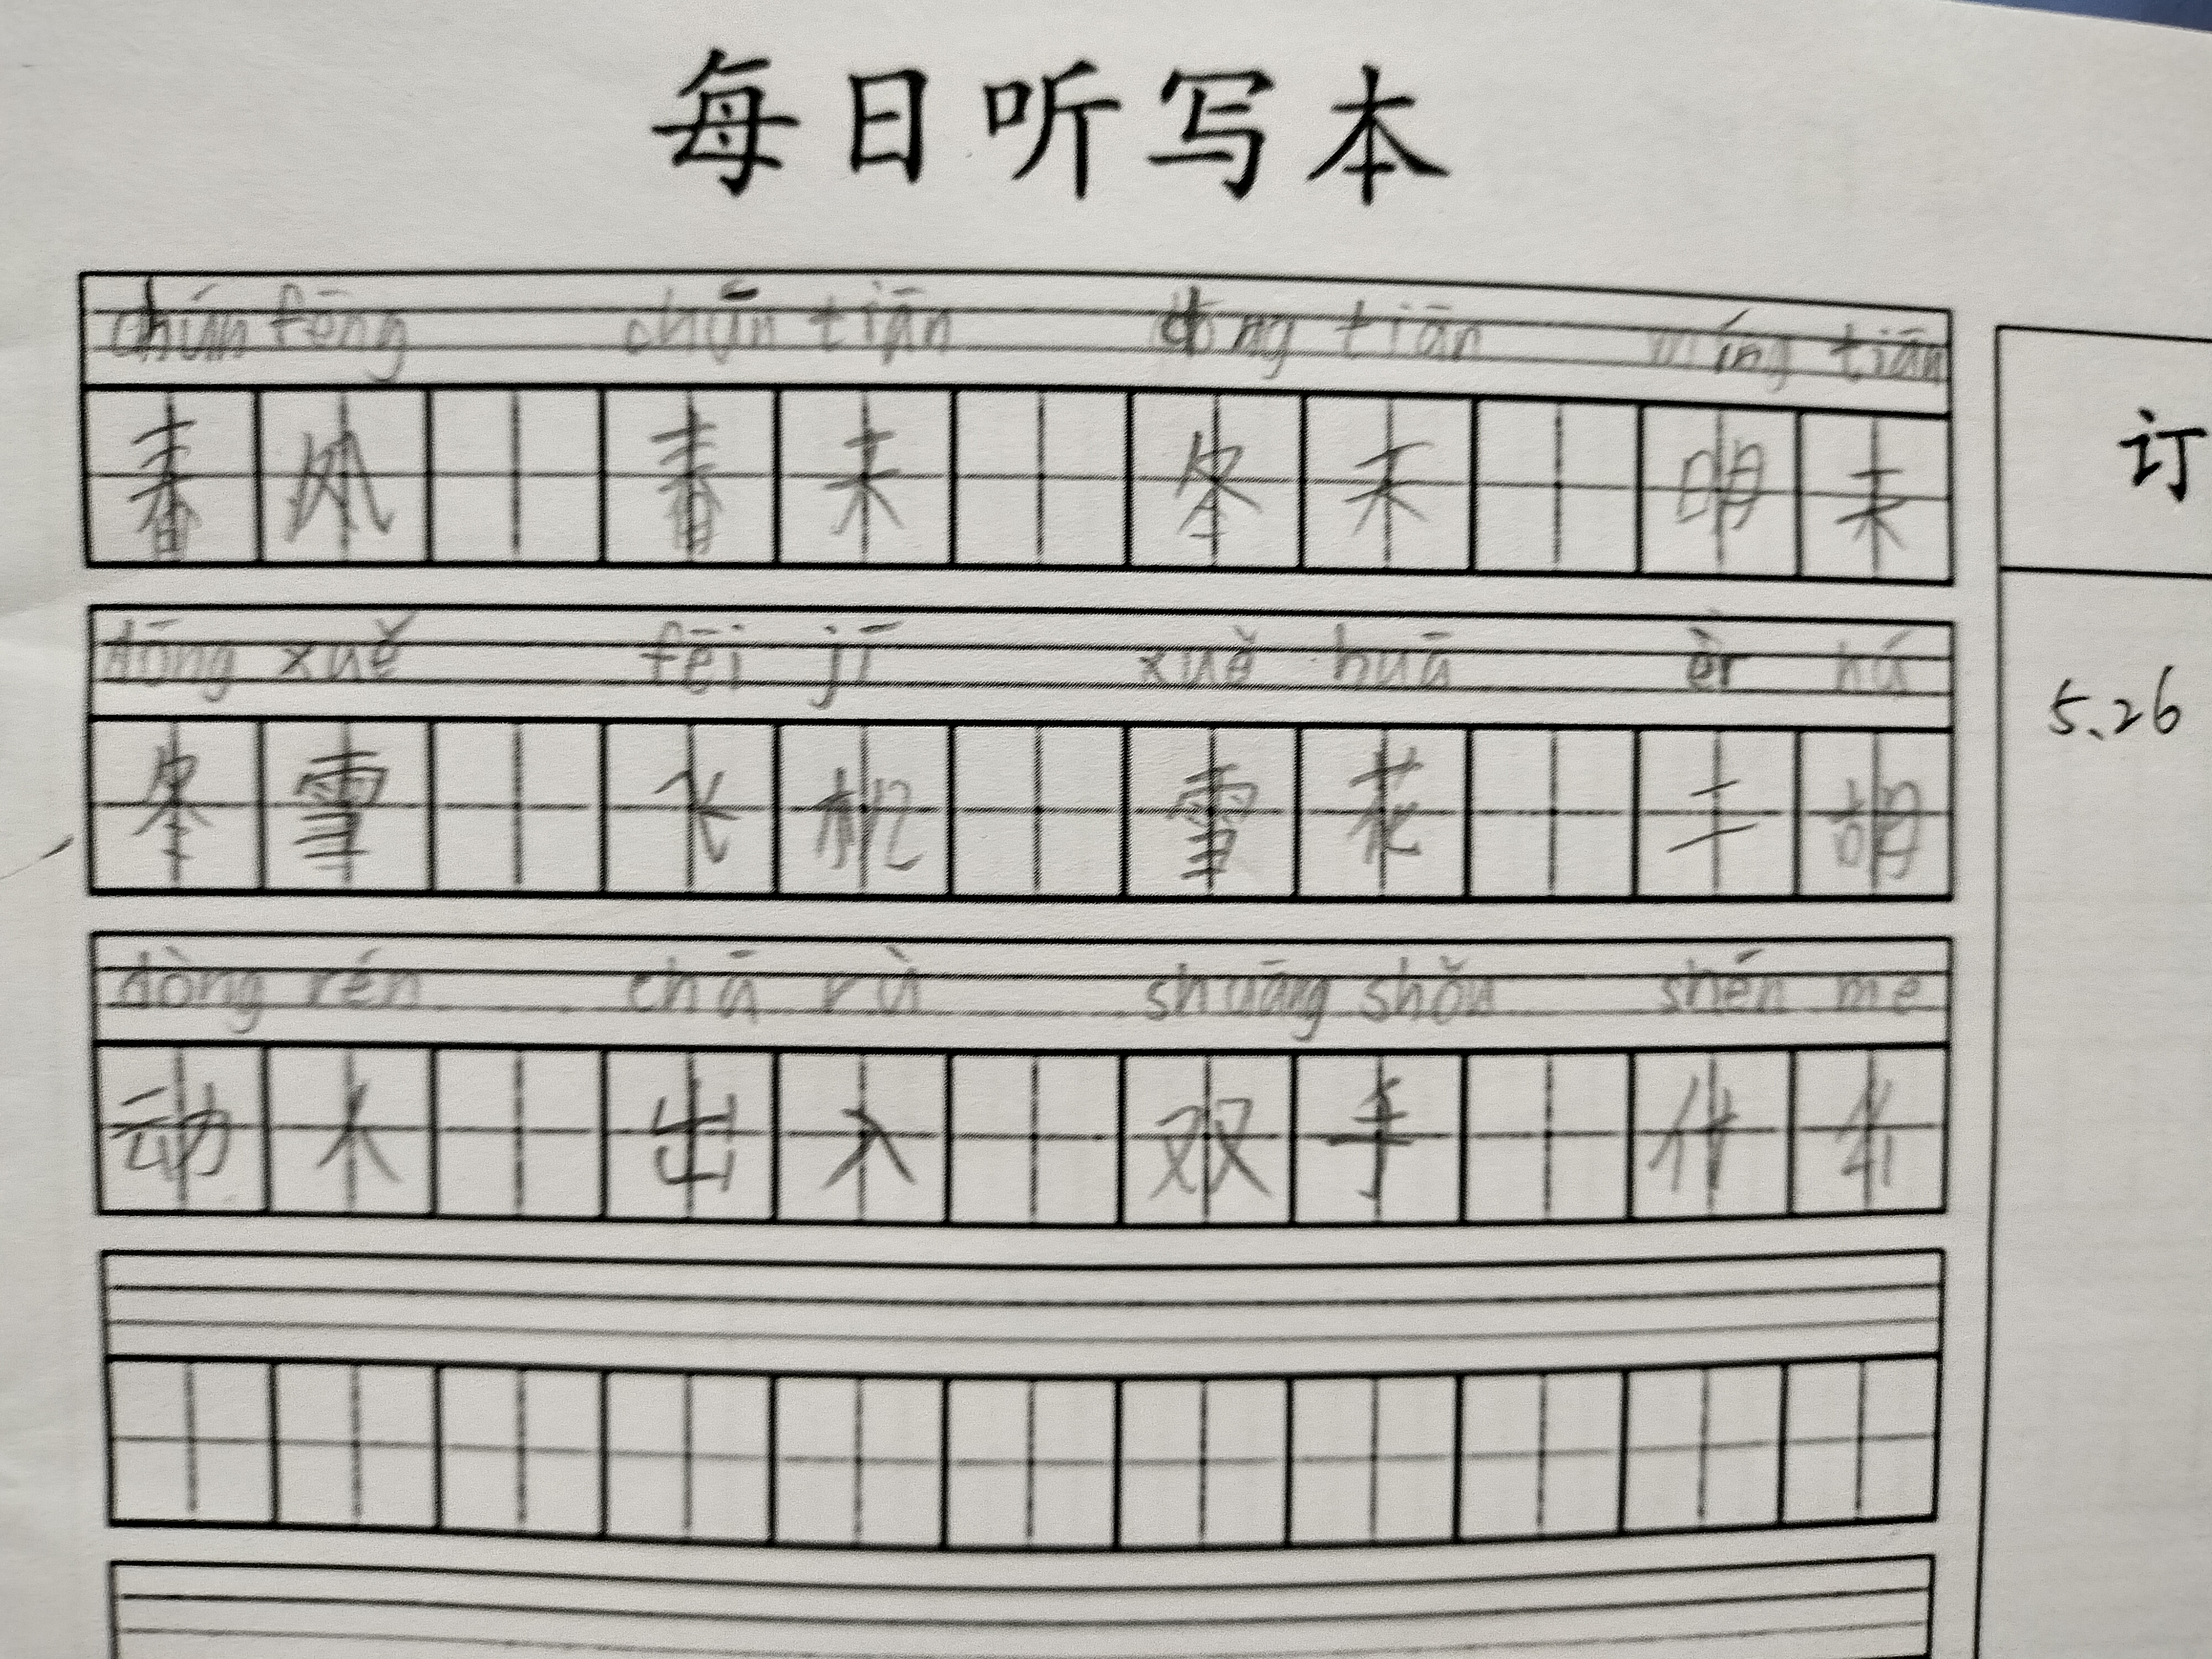 每日听写本
chún fēng chūn tiān dōng tiān míng tiān
春 风 春 天 冬 天 明 天
订
dōng xuě fēi jī xuě huā èr hú
5.26
冬 雪 飞 机 雪 花 二 胡
dòng rén chū rù shuāng shǒu shén me
动 人 出 入 双 手 什 么